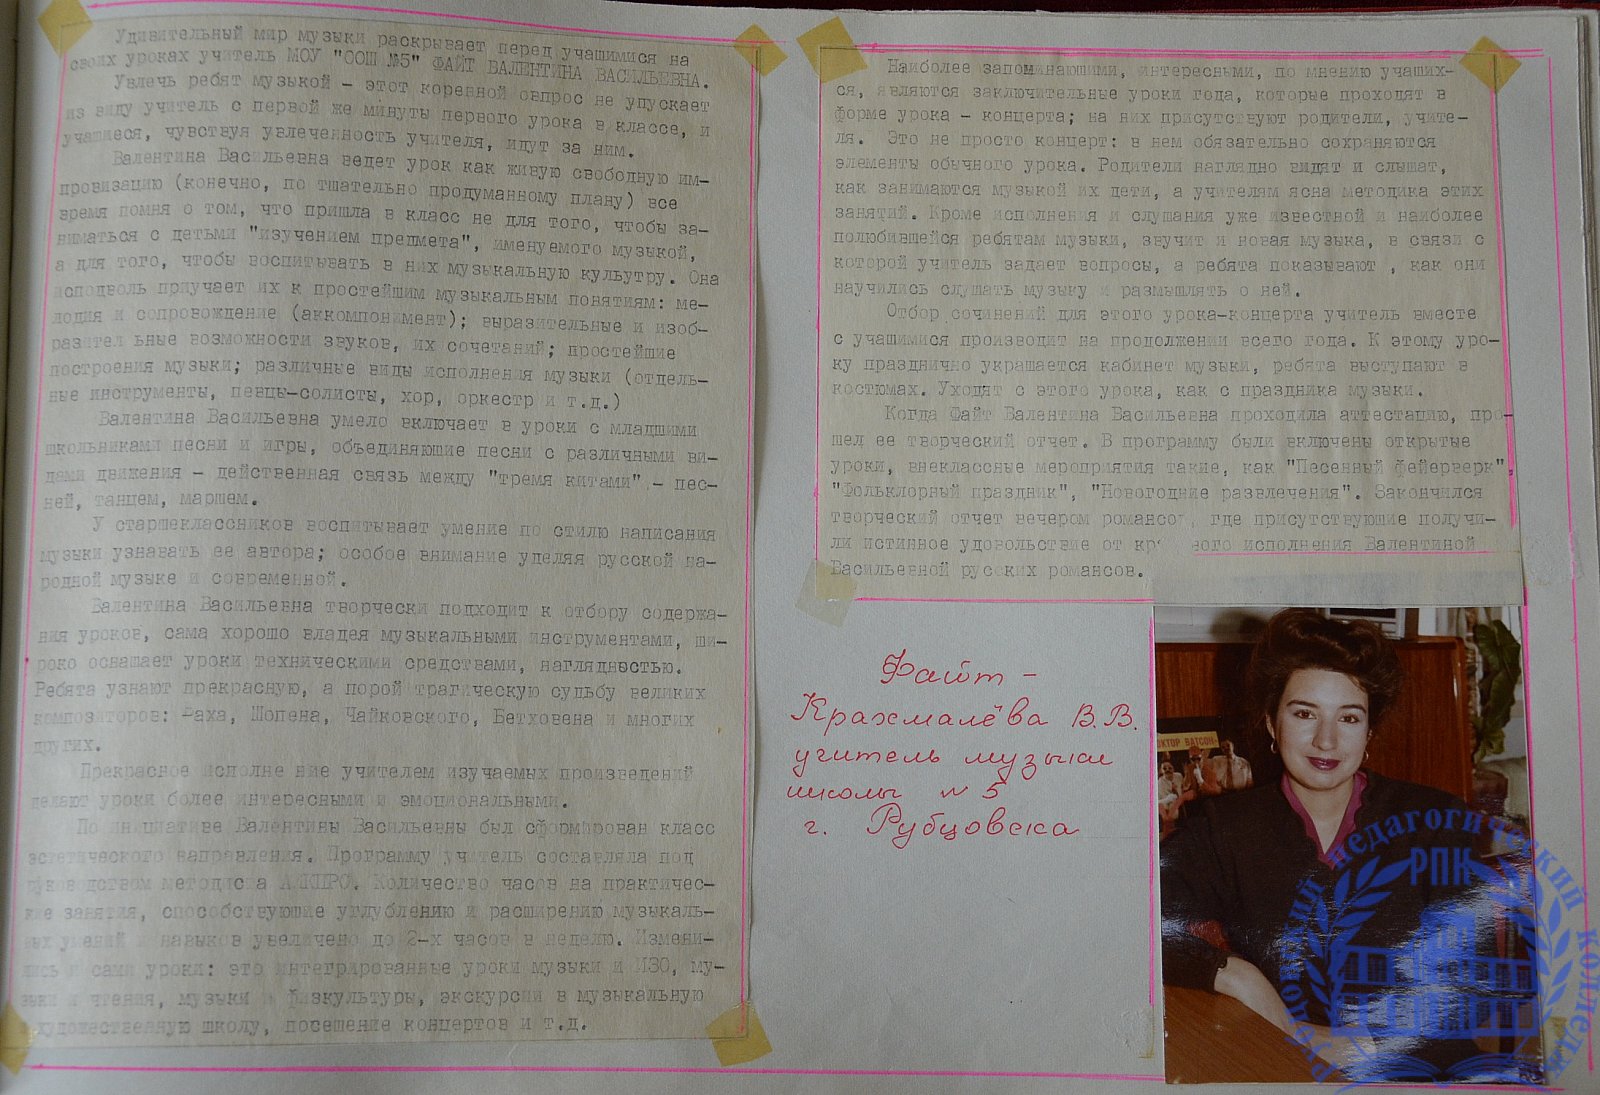 Удивительный мир музыки раскрывает перед учащимися на
своих уроках учитель МОУ "СОШ №5" ФАЙТ ВАЛЕНТИНА ВАСИЛЬЕВНА.
Увлечь ребят музыкой - этот коренной овпрос не упускает
из виду учитель с первой же минуты первого урока в классе, и
учащиеся, чувствуя увлеченность учителя, идут за ним.
Валентина Васильевна ведет урок как живую свободную им-
провизацию (конечно, по тщательно продуманному плану) все
время помня о том, что пришла в класс не для того, чтобы за-
ниматься с детьми "изучением предмета", именуемого музыкой,
а для того, чтобы воспитывать в них музыкальную кульутру. Она
исподволь приучает их к простейшим музыкальным понятиям: ме-
лодия и сопровождение (аккомпонимент); выразительные и изоб-
разительные возможности звуков, их сочетаний; простейшие
построения музыки; различные виды исполнения музыки (отдель-
ные инструменты, певцы-солисты, хор, оркестр и т.д.)
Валентина Васильевна умело включает в уроки с младшими
школьниками песни и игры, объединяющие песни с различными ви-
дами движения - действенная связь между "тремя китами" - пес-
ней, танцем, маршем.
У старшеклассников воспитывает умение по стилю написания
музыки узнавать ее автора; особое внимание уделяя русской на-
родной музыке и современной.
Валентина Васильевна творчески подходит к отбору содержа-
ния уроков, сама хорошо владея музыкальными инструментами, ши-
роко оснащает уроки техническими средствами, наглядностью.
Ребята узнают прекрасную, а порой трагическую судьбу великих
композиторов: Баха, Шопена, Чайковского, Бетховена и многих
других.
Прекрасное исполне ние учителем изучаемых произведений
делают уроки более интересными и эмоциональными.
По инициативе Валентины Васильевны был сформирован класс
эстетического направления. Программу учитель составляла под
руководством методиста АКИПРО. Количество часов на практичес-
кие занятия, способствующие углублению и расширению музыкаль-
ных умений и навыков увеличено до 2-х часов в неделю. Измени-
лись и сами уроки: это интегрированные уроки музыки и ИЗО, му-
зыки и чтения, музыки и физкультуры, экскурсии в музыкальную
и художественную школу, посещение концертов и т.д.
Наиболее запоминающими, интересными, по мнению учащих-
ся, являются заключительные уроки года, которые проходят в
форме урока - концерта; на них присутствуют родители, учите-
ля. Это не просто концерт: в нем обязательно сохраняются
элементы обычного урока. Родители наглядно видят и слышат,
как занимаются музыкой их дети, а учителям ясна методика этих
занятий. Кроме исполнения и слушания уже известной и наиболее
полюбившейся ребятам музыки, звучит и новая музыка, в связи с
которой учитель задает вопросы, а ребята показывают , как они
научились слушать музыку и размышлять о ней.
Отбор сочинений для этого урока-концерта учитель вместе
с учащимися производит на продолжении всего года. К этому уро-
ку празднично украшается кабинет музыки, ребята выступают в
костюмах. Уходят с этого урока, как с праздника музыки.
Когда Файт Валентина Васильевна проходила аттестацию, про-
шел ее творческий отчет. В программу были включены открытые
уроки, внеклассные мероприятия такие, как "Песенный фейерверк",
"Фольклорный праздник", "Новогодние развлечения". Закончился
творческий отчет вечером романсов, где присутствующие получи-
ли истинное удовольствие от исполнения Валентиной
Васильевной русских романсов.
Файт -
Крахмалёва В.В.
учитель музыки
школы № 5
г. Рубцовска
ДОКТОР ВАТСОН
РПК
Рубцовский педагогический колледж